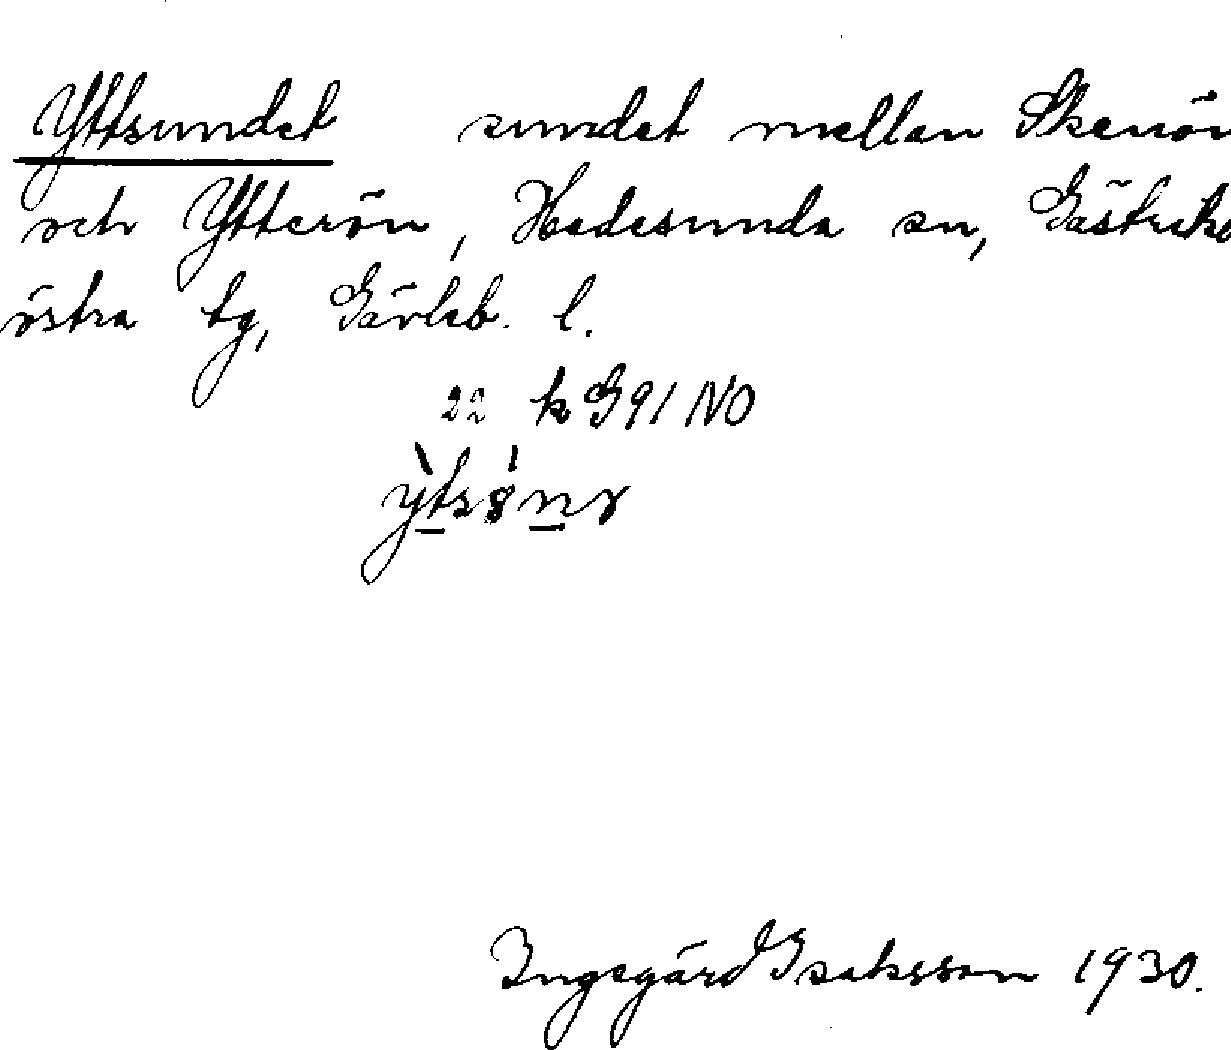 Yttsundet sundet mellan Skenön
och Ytterön, Hedesunda sn, Gästrikl
östra tg, Gävleb. l.
22 k G91 NO
Ingegärd Isaksson 1930.